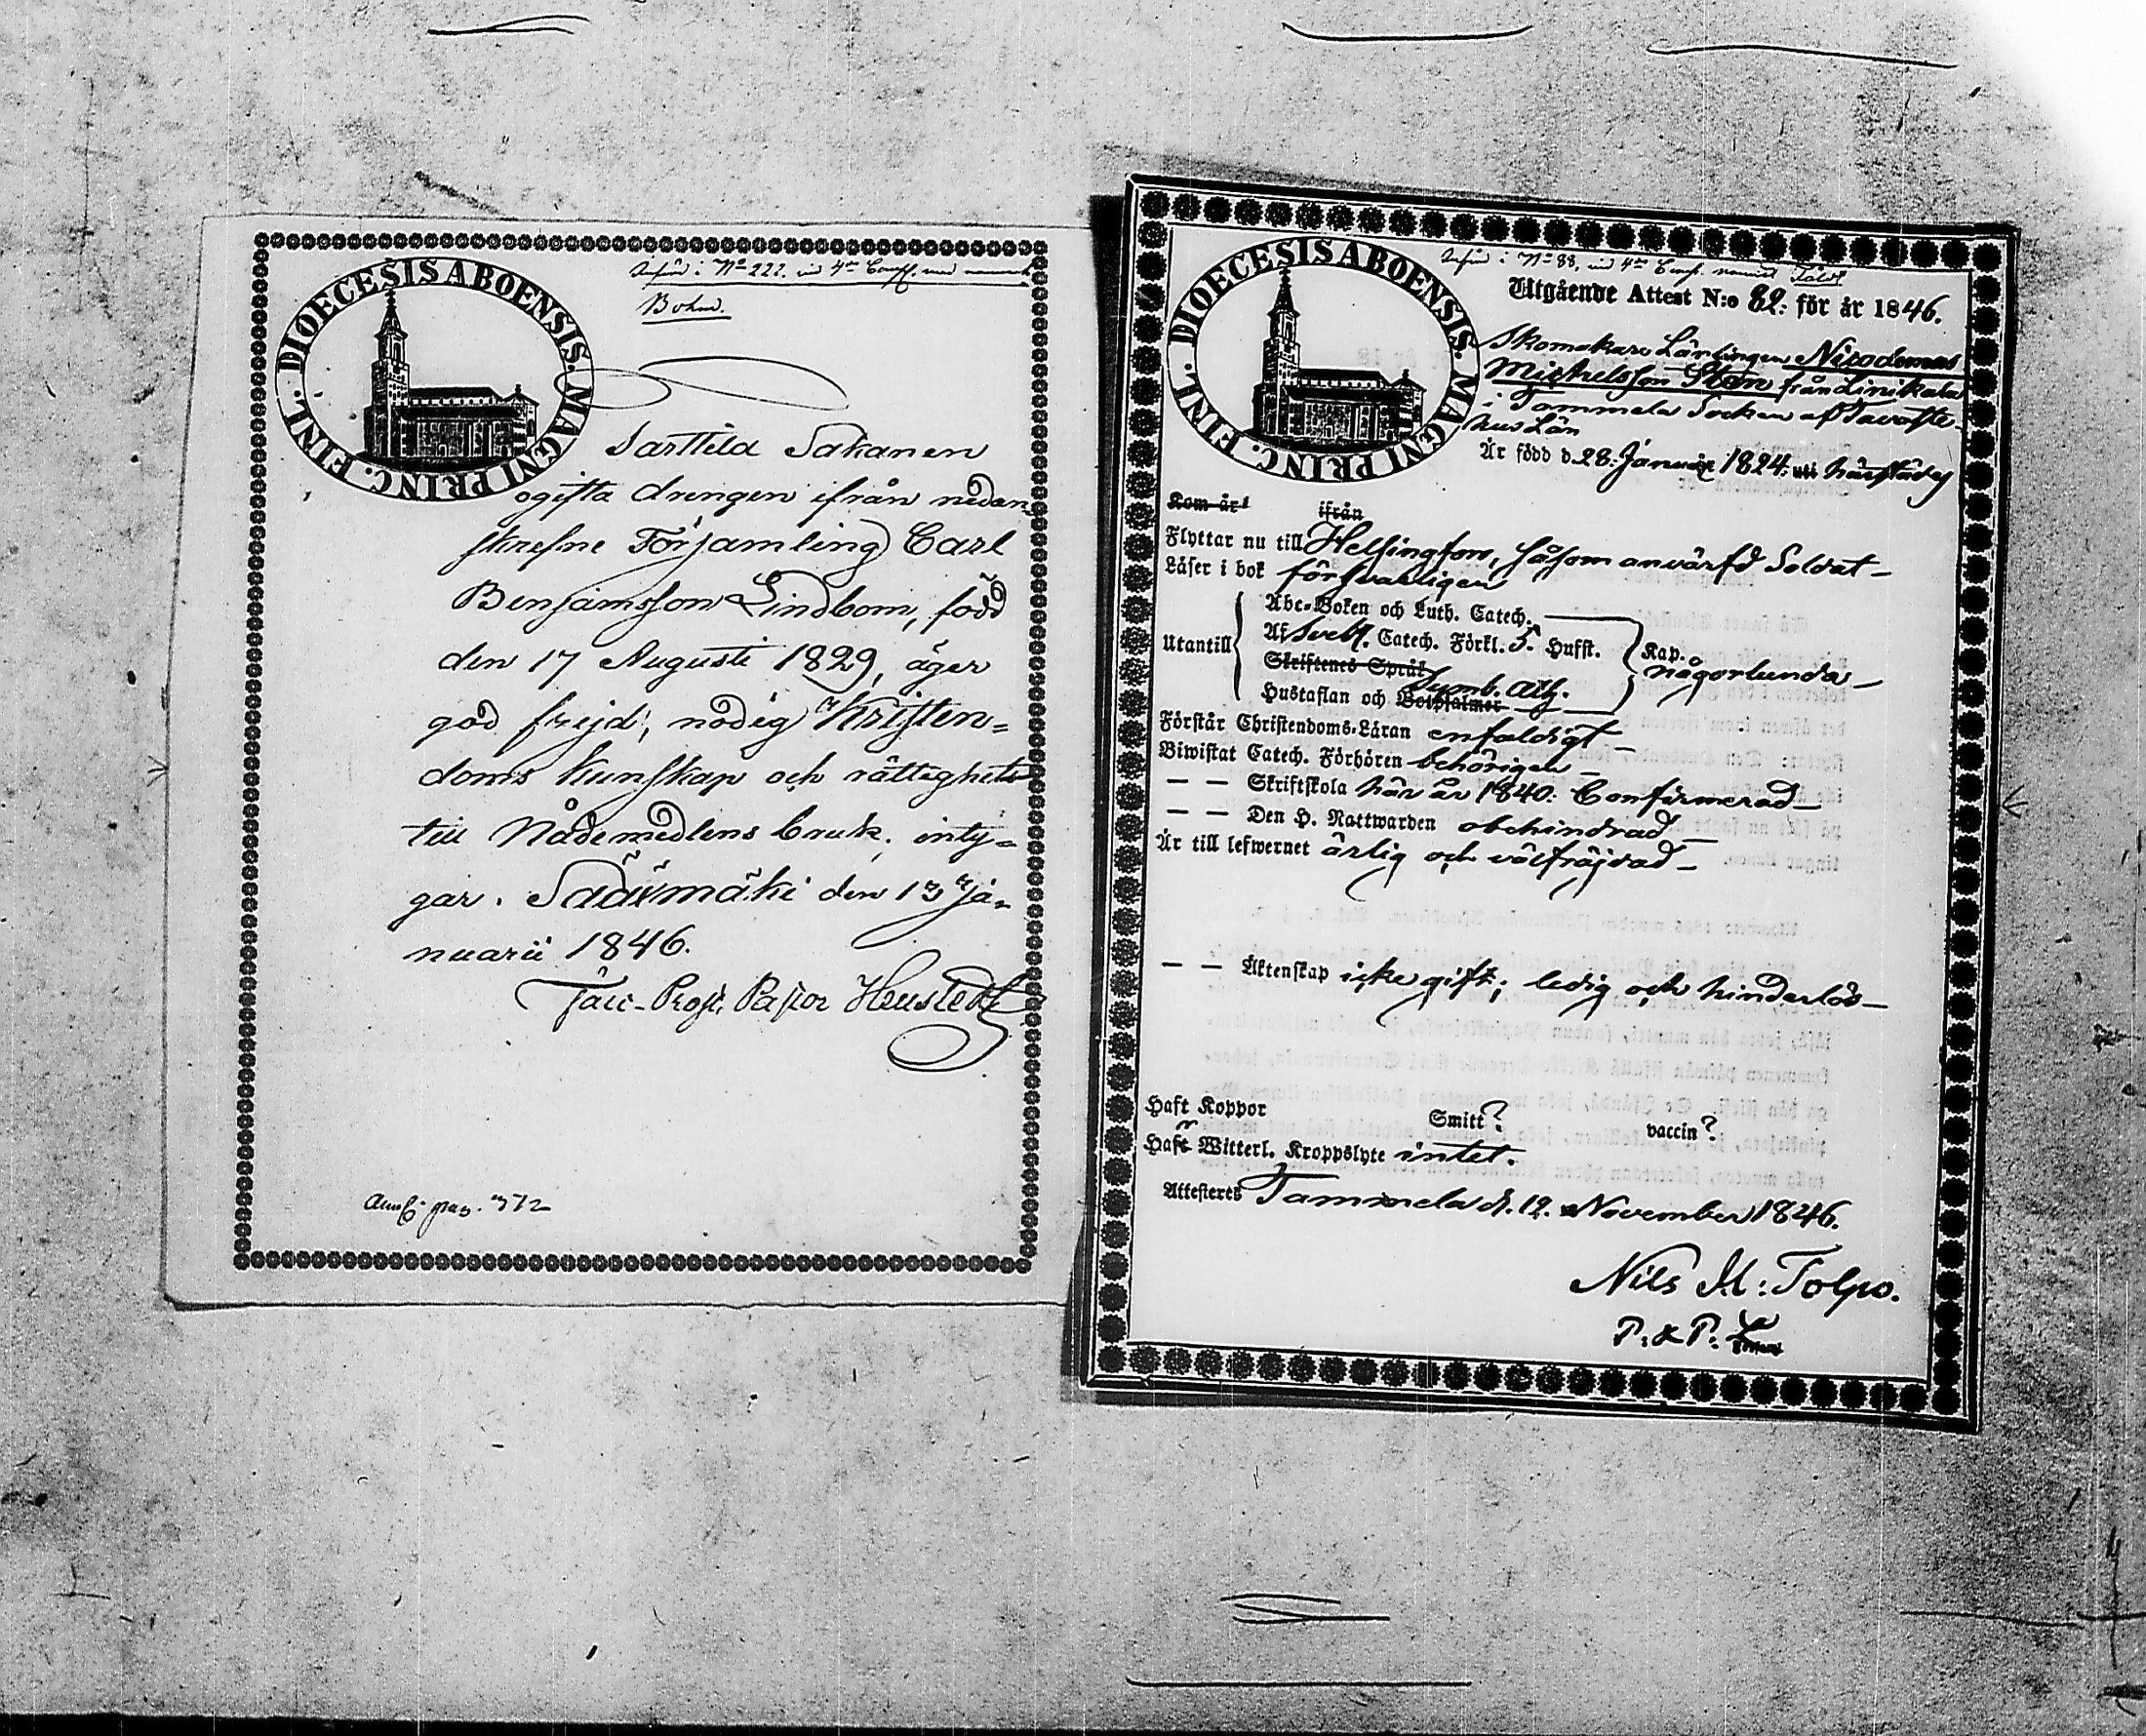 DIOECESIS ABOENSIS. MAGNI PRINC. FINL.
Införd i No 222. vid 4de Comp. med namnet
Bohm.
Sakanen
ogifta drengen ifrån nedan-
skrefne Församling Carl
Benjamsson Lindbom, född
den 17 Augusti 1829, äger
god frejd, nödig Kristen=
doms kunskap och rättighet
till Nådemedlens bruk, inty=
gar. Sääxmäki den 13 Ja-
nuarii 1846.
Past.
pag. 372
DIOECESIS ABOENSIS. MAGNI PRINC. FINL.
Införd i No 88, vid 4de Comp. namnet
Utgående Attest N:o 82: för år 1846.
Skomakare Lärlingen Nicodemus
Michelsson Sten från Linikkala
i Tammela Socken af Tavaste-
hus Län
Är född d. 28: Januar 1824: uti härstädes
Kom år ifrån
Flyttar nu till Helsingfors, såsom anvärfd Soldat –
Läser i bok försvarligen
Utantill
Abc-Boken och Luth. Catech.
Af Sveb. Catech. Förkl. 5. Hufst.
Skriftenes Språk
Symb. Ath.
Hustaflan och Botpsalmer
Kap.
någorlunda –
Förstår Christendoms-Läran enfaldigt –
Biwistat Catech. Förhören behörigen –
– – Skriftskola här år 1840: Confirmerad –
– – Den H. Nattwarden obehindrad –
Är till lefwernet ärlig och välfräjdad –
– – Äktenskap icke gift; ledig och hinderlös –
Haft Koppor Smitt? vaccin?
Haft Witterl. Kroppslyte intet.
Attesteres Tammela d. 12. November 1846.
Nils M: Tolpo.
P. & P.